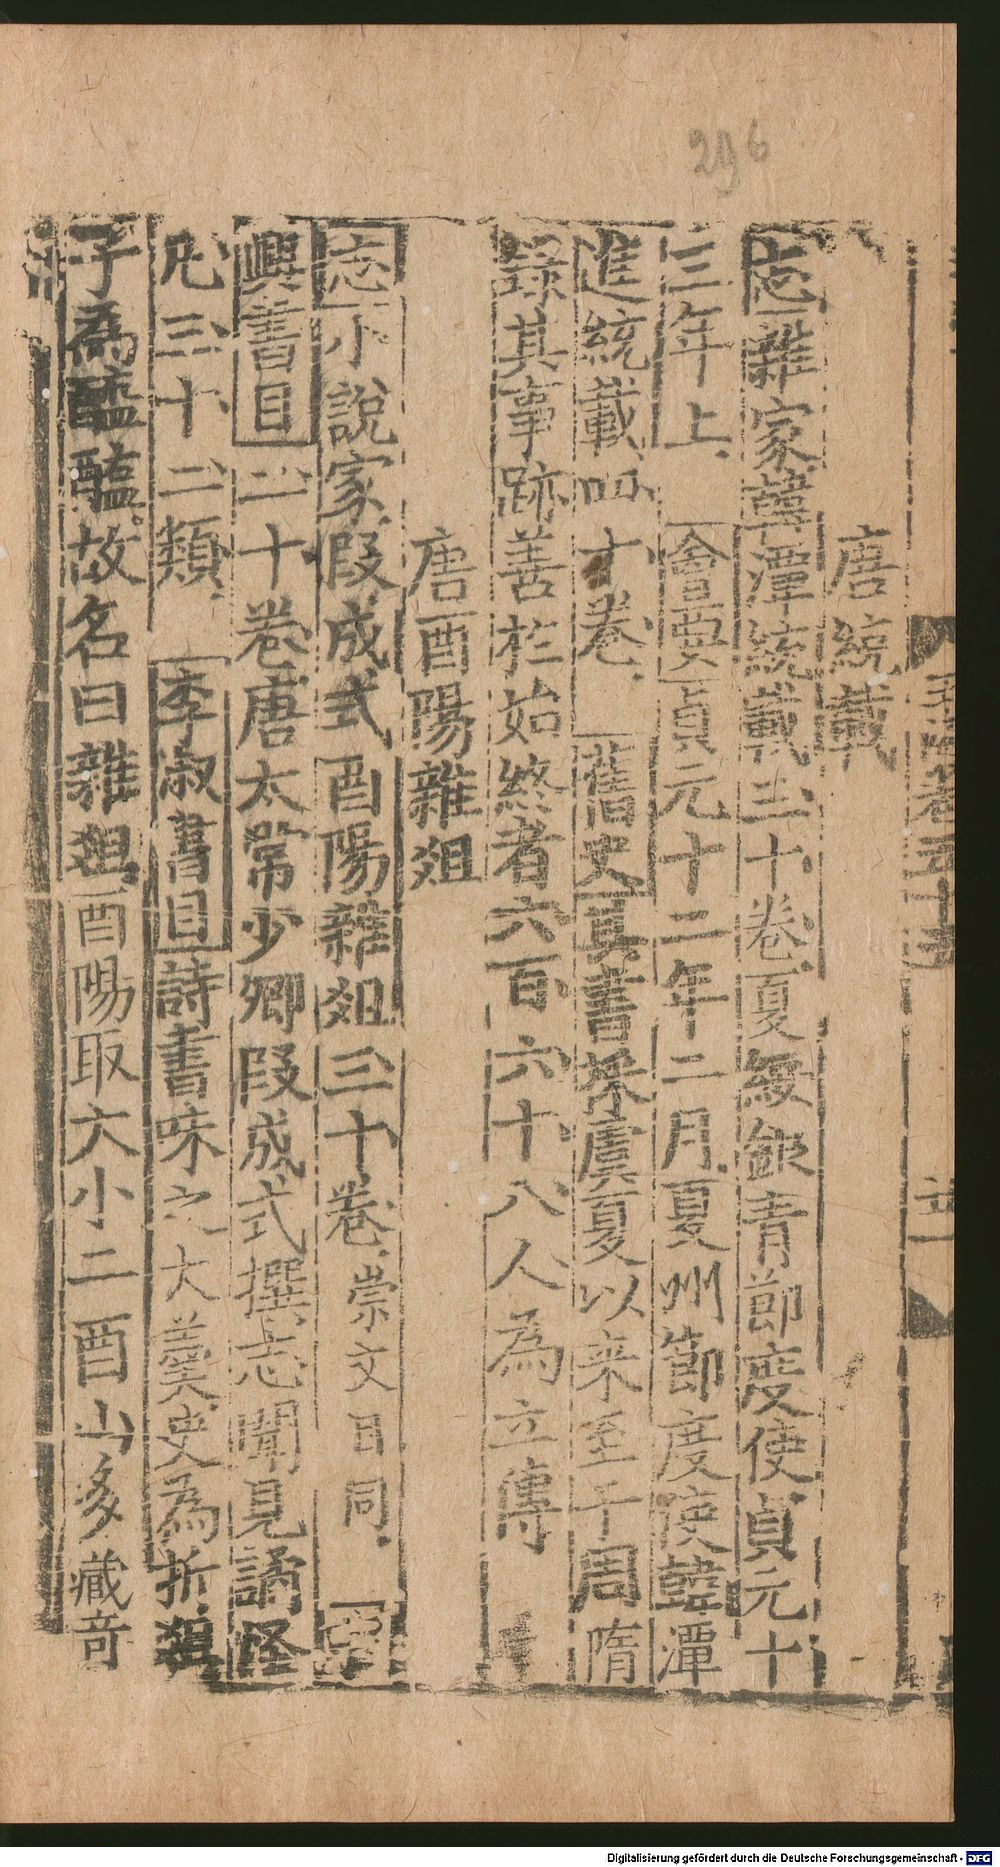 296
唐統載
志雜家韓潭統載三十卷夏綏銀青節度使貞元十
三年上會要貞元十二年二月夏州節度使韓潭
進統載四十卷舊史其書採虞夏以来至于周隋
錄其事跡善於始終者六百六十八人為立傳
唐酉陽雜俎
志小說家段成式酉陽雜俎三十卷崇文目同
興書目二十卷唐太常少卿段成式撰志聞見譎怪
凡三十二類李淑書目詩書味之大羹史為折俎
子為醯醢故名曰雜俎酉陽取大小二酉山多藏奇
Digitalisierung gefördert durch die Deutsche Forschungsgemeinschaft - DFG